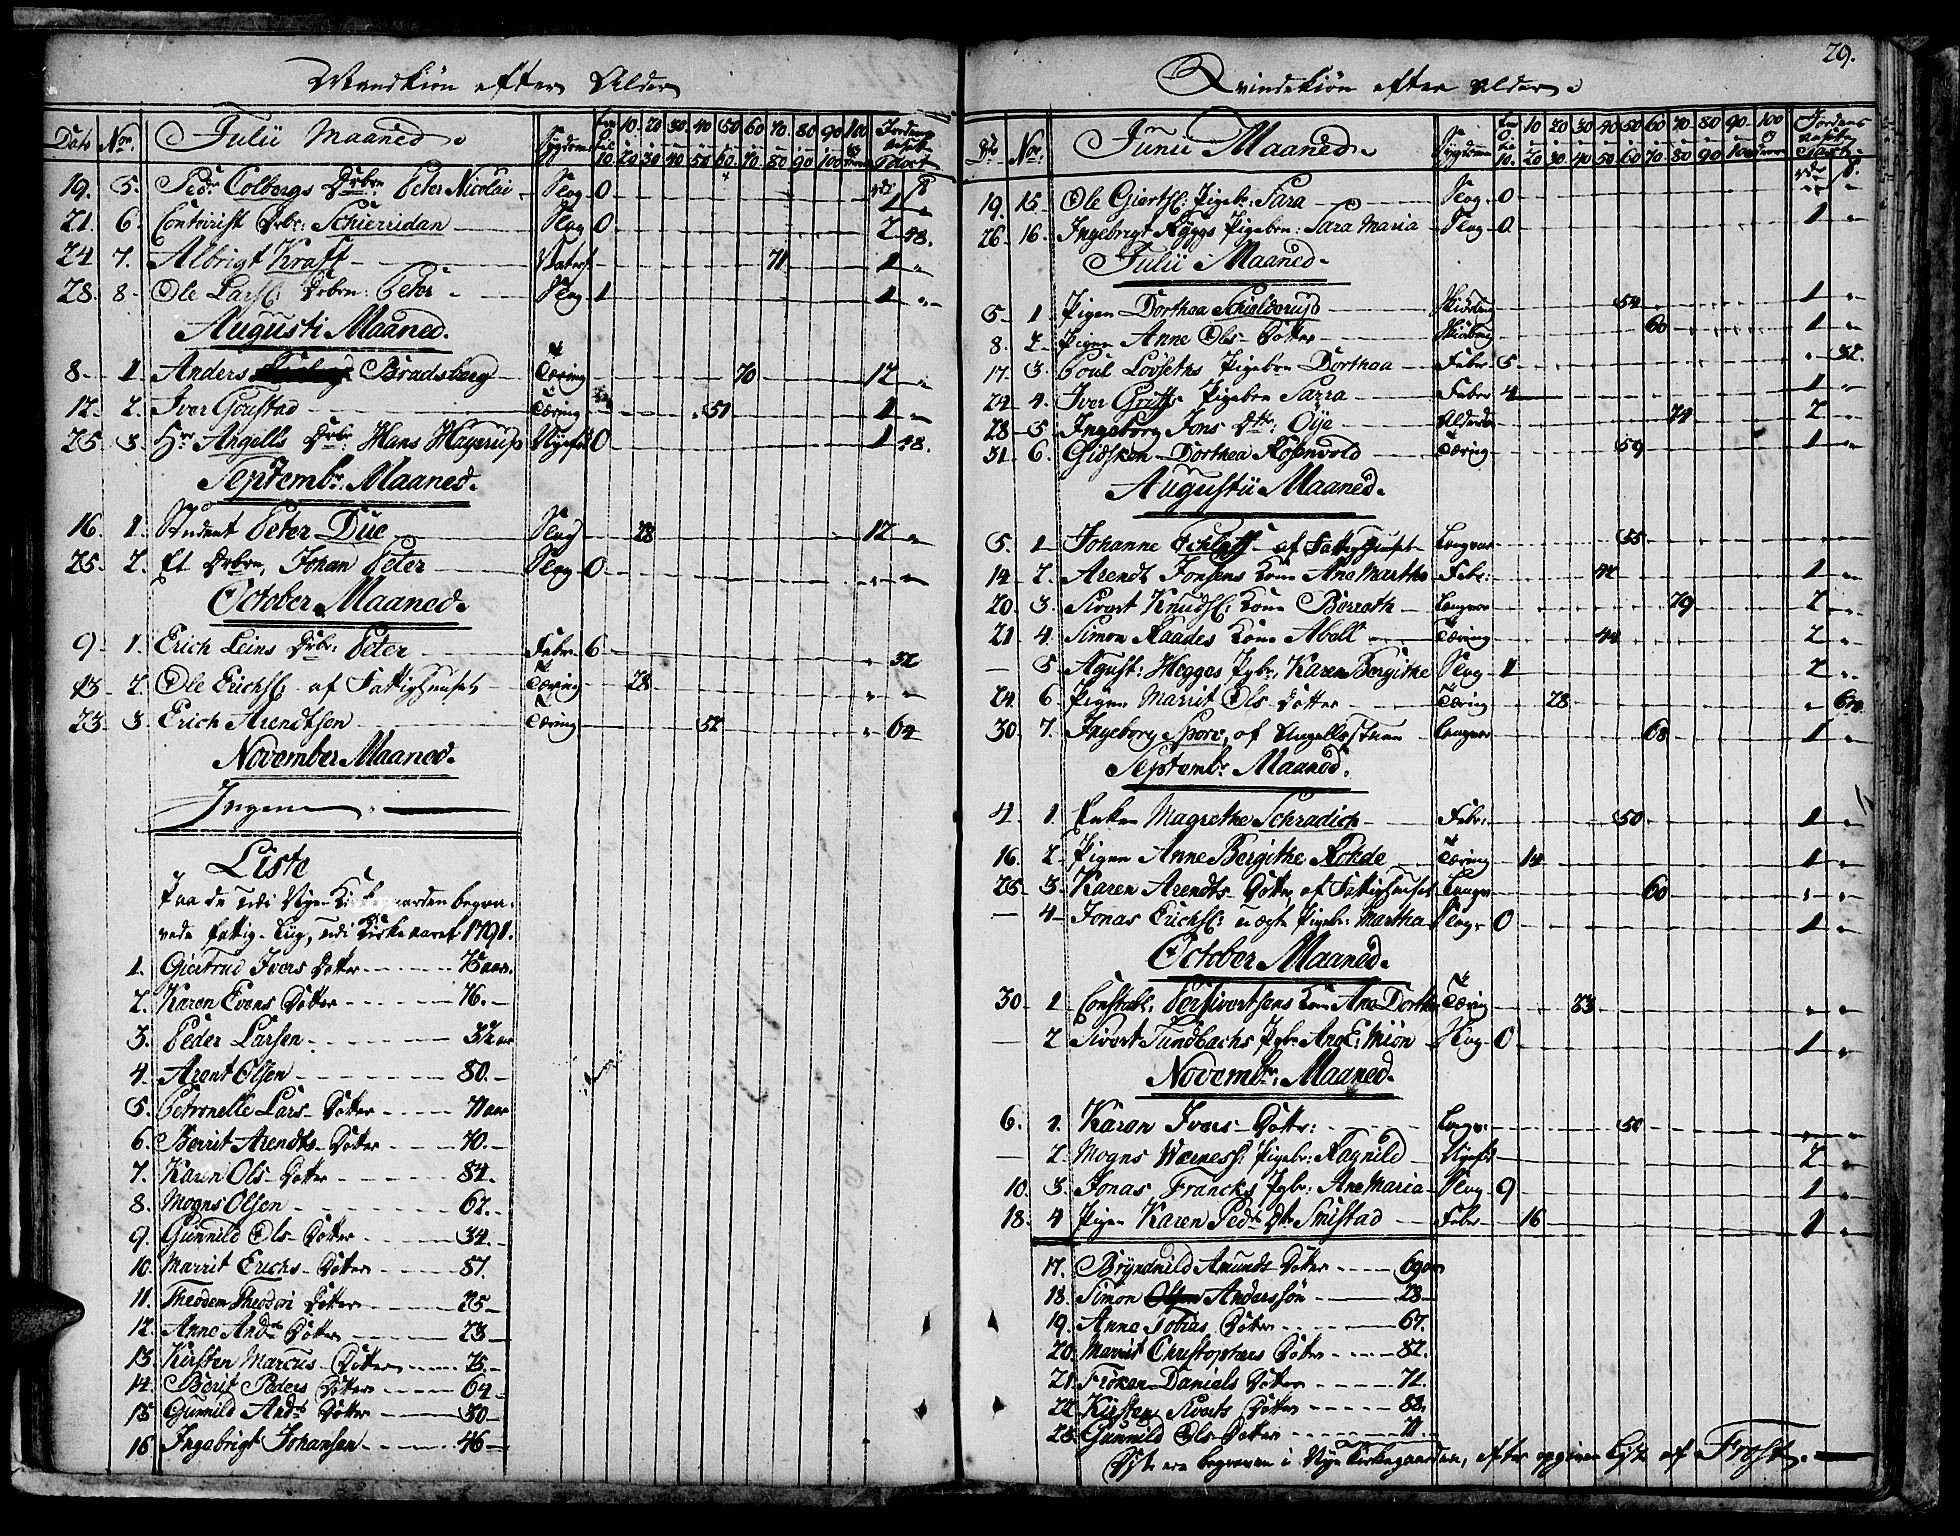 Mandkiøn efter Alder
Dato No. Julii Maaned. Sygdom 10 20 30 40 50 60 70 80 90 100
10 20 30 40 50 60 70 80 90 100
19. 5. Pedr Colbergs Drbrn: Peter Nicolai Slag 0 1 "
21. 6. Contoirist Drbr: Schierridan Slag 0 2 48.
24 7. Albrigt Kraft Vaters. 71 1 "
28. 8 Ole Larss: Drbrn: Peter Slag 1 1 "
Augusti Maaned.
8 1 Anders Bradsberg Tæring 70 12 "
12 2. Iver Goustad Tæring 51 1 "
25 3 Hr Angells Drbr: Hans Hagerup Nyefød 0 1 48.
Septembr. Maaned.
16 1. Student Peter Due Slag 28 12 "
25. 2. Et Drbrn, Johan Peter Slag 0 " "
October Maaned.
9 1. Erich Leins Drbr: Peter Feber 6 " 32
13 2. Ole Erichs: af Fattighuuset Tæring 28 " "
23 3 Erich Arendtsen Tæring 52 " 64
November Maaned.
Ingen
Liste
Paa de udi Nye Kirkegaarden begra-
vede fattig-Liig, udi Kirke aaret 1791.
1. Giertrud Ivers Dotter 75 aar.
2. Karen Evens Dotter 76.
3. Peder Larsen 32 aar
4 Arent Olsen 80.
5. Petronelle Lars Dotter 71 aar
6. Berrit Arendts Dotter 70.
7. Karen Ols Dotter 84.
8. Mogns Olsen 62.
9. Gunnild Ols Dotter 34.
10. Marrit Erichs Dotter 87.
11. Theodem Theodori Dotter 25
12. Anne Ands Dotter 23
13. Kirsten Marcus Dotter 75.
14. Berit Peders Dotter 64
15 Gunnild Ands Dotter 30
16 Ingebrigt Johansen 46
29.
Qvindekiøn efter Alder.
No. Junii Maaned. Sygdom 10 20 30 40 50 60 70 80 90 100
10. 20 30 40 50 60 70 80 90 100
19. 15 Ole Giertss: Pigebr: Sara Slag 0 " "
26 16. Ingebrigt Aggs Pigebrn: Sara Maria Slag 0 1 "
Julii Maaned.
5 1 Pigen Dorthea Schielderup 54 1 "
8. 2 Pigen Anne Ols Dotter 60 1 "
17 3 Poul Lovseths Pigebrn Dorthea Feber 5 " 32.
24 4. Iver Grøtts Pigebrn Sarra Feber 4 1 "
28 5 Ingeborg Jons Dtr: Oÿe Alderd. 74 2 "
31 6. Gidsken Dorthea Rosenvold Tæring 59 1 "
Augustii Maaned.
5. 1 Johanne Schlytt af Fattighuuset Langvar 55 " "
14 2. Arendt Jonsens Kone Ane Martha Febr: 42 1 "
20 3. Sivert Knuds: Kone Berrath Langvar 79 2 "
21 4. Simon Raades Kone Abell Tæring 44 2 "
5 August: Hegges Pgbr: Karen Bergithe Slag 1 2 "
24 6 Pigen Marrit Ols Dotter Tæring 28 "
30 7. Ingeborg Spore, af Angellsstuen Langvar 68 1 "
Septembr Maaned.
4 1. Enken Magrethe Schradich Febr: 50 1 "
16. 2 Pigen Anne Bergithe Rohde Tæring 14 1 "
25 3. Karen Arendts Dotter, af Fattighuuset Langvar 60 " "
4 Jonas Erichs: uægte Pigebr: Martha Slag 0 1 "
October Maaned.
30 1 Constabl: Per Sivertsens Kone Ane Dorthe Tæring 33 " "
2 Sivert Sundbachs Pgbr Ane E: Miøn Slag 0 1 "
Novembr. Maaned.
6. 1. Karen Ivers Dotter: Langvr. 50 " "
2 Mogns Wærness: Pigebr: Ragnild Nyefød 2 "
10. 3. Jonas Francks Pgbr: Ane Maria Slag 9 1 "
18. 4 Pigen Karen Peds Dtr Smistad Feber 16 1 "
17. Bryndnild Amunds Dotter 69 aar
18. Simon Olsen Anderssøn 28
19. Anne Tobias Dotter 67.
20. Marrit Christophers Dotter 82.
21. Frøken Daniels Dotter 72.
22 Kirsten Siverts Dotter 88.
23. Gunnild Ols Dotter 71.
Diste ere begraven i Nye Kirkegaarden, efter opgiven Liste af Frost.